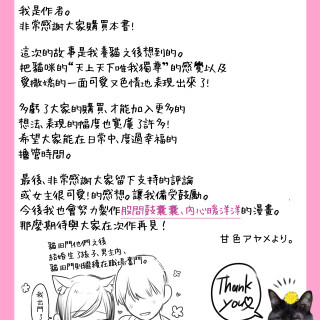 我是作者。
非常感謝大家購買本書!
這次的故事是我養貓之後想到的。
把貓咪的“天上天下唯我獨尊”的感覺以及
愛撒嬌的一面可愛又色情地表現出來了!
多虧了大家的購買,才能加入更多的
想法、表現的幅度也寬廣了許多!
希望大家能在日常中、度過幸福的
擼管時間。
最後、非常感謝大家留下支持的評論
或女主很可愛!的感想。讓我備受鼓勵。
今後我也會努力製作股間鼓囊囊、內心暖洋洋的漫畫。
那麼期待與大家在次作再見!
甘色アヤメより。
貓田鬥他們之後
結婚生了孩子、男主內、
貓田鬥則繼續在職場奮鬥。
我出門了
Thank
you♡